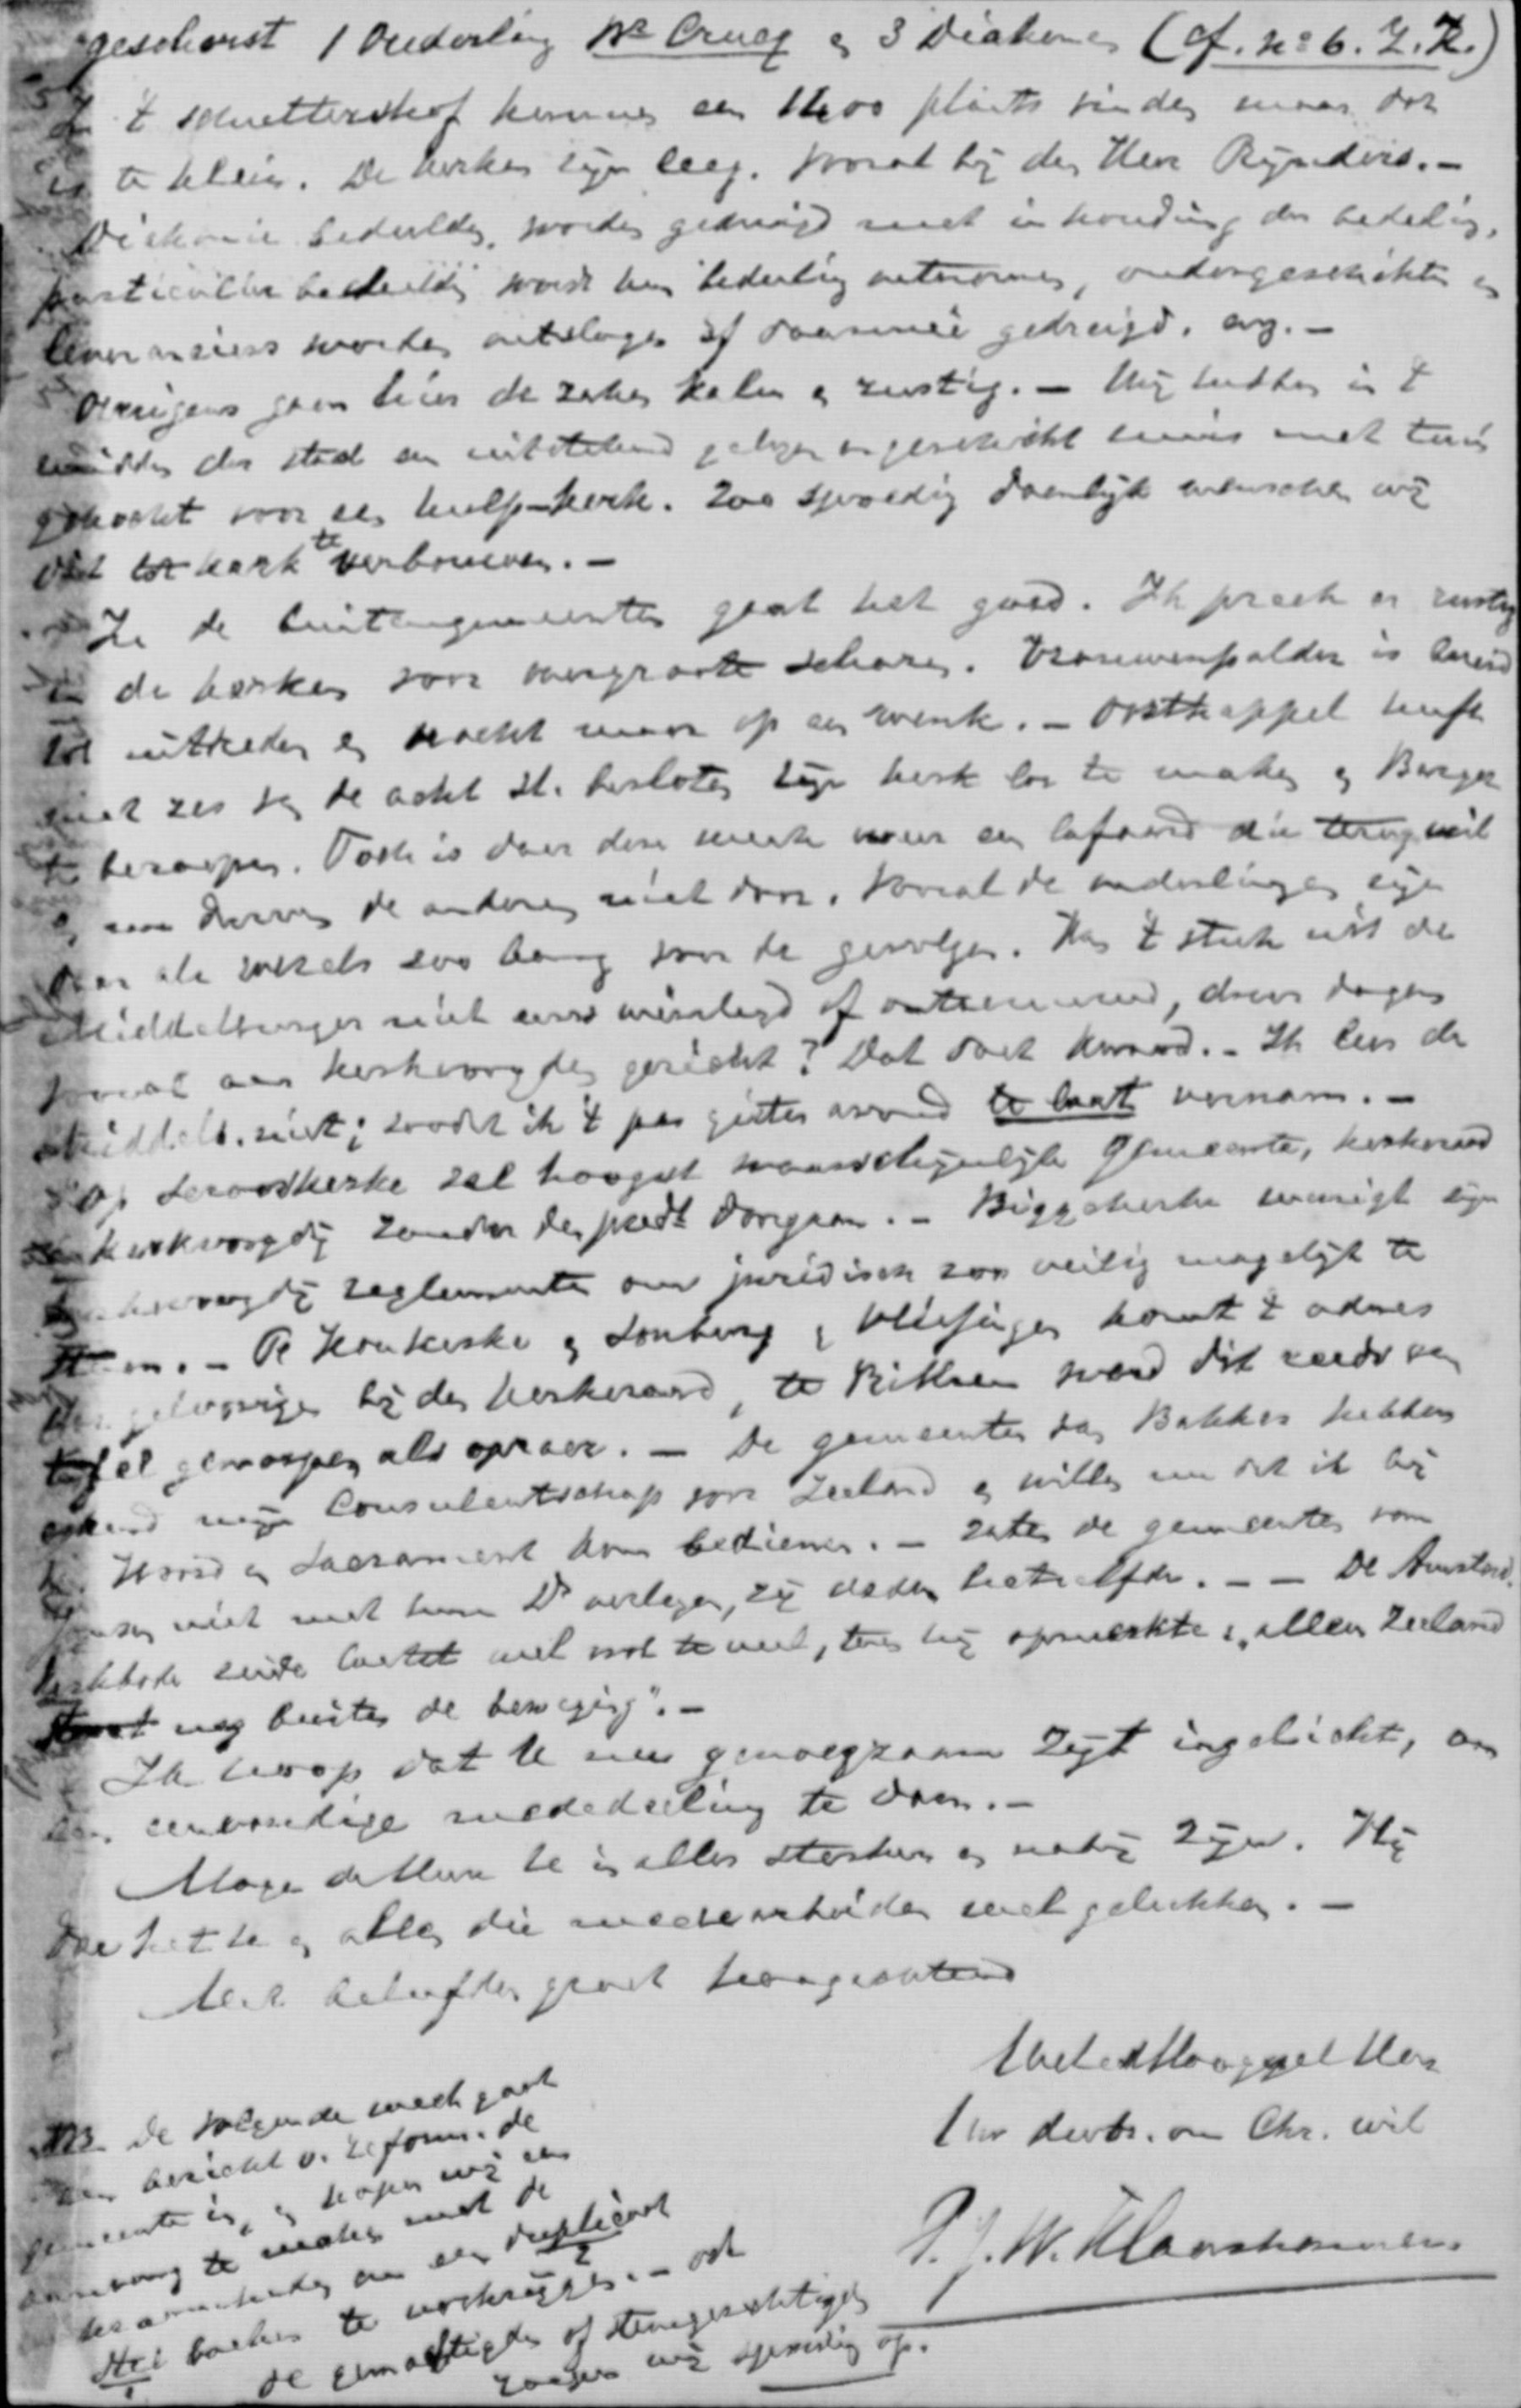 geschorst 1 Ouderling Ws Crucq en 3 Diakenen (cf. no 6. Z.K.)
In 't schuttershof kunnen een 1400 plaats vinden maar dat
is te klein. De kerken zijn leeg. vooral bij den Heer Rijnders. –
Diakonie bedeelden, worden gedreigd met inhouding der bedeeling,
particulier bedeelden wordt hun bedeeling ontnomen, ondergeschikten en
leveranciers worden ontslagen of daarmeê gedreigd. enz. –
Overigens gaan hier de zaken kalm en rustig. – Wij hebben in 't
midden der stad een uitstekend gelegen en geschikt huis met tuin
gekocht voor een hulp-kerk. Zoo spoedig doenlijk wenschen wij
dat tot kerk te verbouwen. –
In de buitengemeenten gaat het goed. Ik preek er rustig
in de kerken voor overgroote scharen. Vrouwenpolder is bereid
tot uittreden en wacht maar op een wenk. – Oostkappel heeft
met zes van de acht st. besloten zijn kerk los te maken en Barger
te beroepen. Toch is daar deze week weer een lafaard die terug wil
en nu durven de anderen niet door. Vooral de ouderlingen zijn
daar als wezels zoo bang voor de gevolgen. Kan 't stuk uit de
Middelburger niet eens weerlegd of ontzenuwd, dezer dagen
vooral aan kerkvoogden gericht? Dat doet kwaad. – Ik lees de
Middelb. niet; zoodat ik 't pas gister avond te laat vernam. –
Op Serooskerke zal hoogst waarschijnlijk gemeente, kerkeraad
en kerkvoogdij zonder den predt doorgaan. – Biggekerke wenigt zijn
kerkvoogdij reglementen om juridisch zoo veilig mogelijk te
staan. – Te Koukerke en Domburg en Vlissingen komt 't adres
der geloovigen bij den kerkeraad, te Rilland werd dit reeds van
tafel geworpen als oproer. – De gemeenten van Bakker hebben
erkend mijn Consulentschap voor Zeeland en willen nu dat ik bij
hen Woord en Sacrament kom bedienen. – Zaten de gemeenten van
Jansen niet met hun Ds verlegen, zij deden hetzelfde. – – De Amsterd.
kerkbode zeide laatst wel wat te veel, toen hij opmerkte: "alleen Zeeland
staat nog buiten de beweging". –
Ik hoop dat U nu genoegzaam zijt ingelicht, om
een eenvoudige mededeeling te doen. –
Moge de Heer U in alles sterken en nabij zijn. Hij
doe het U en allen die medearbeiden wel gelukken. –
Met beleefden groet hoogachtend
Weled Hooggel Heer
Uw dwbr. om Chr. wil
P.J.W. Klaarhamer.
NB. De volgende week gaat
een bericht v. Reform. de
gemeente in, en hopen wij een
aanvang te maken met de
werkzaamheden om een duplicaat
der boeken te verkrijgen. – ook
de gemachtigden of stemgerechtigden
roepen wij spoedig op.